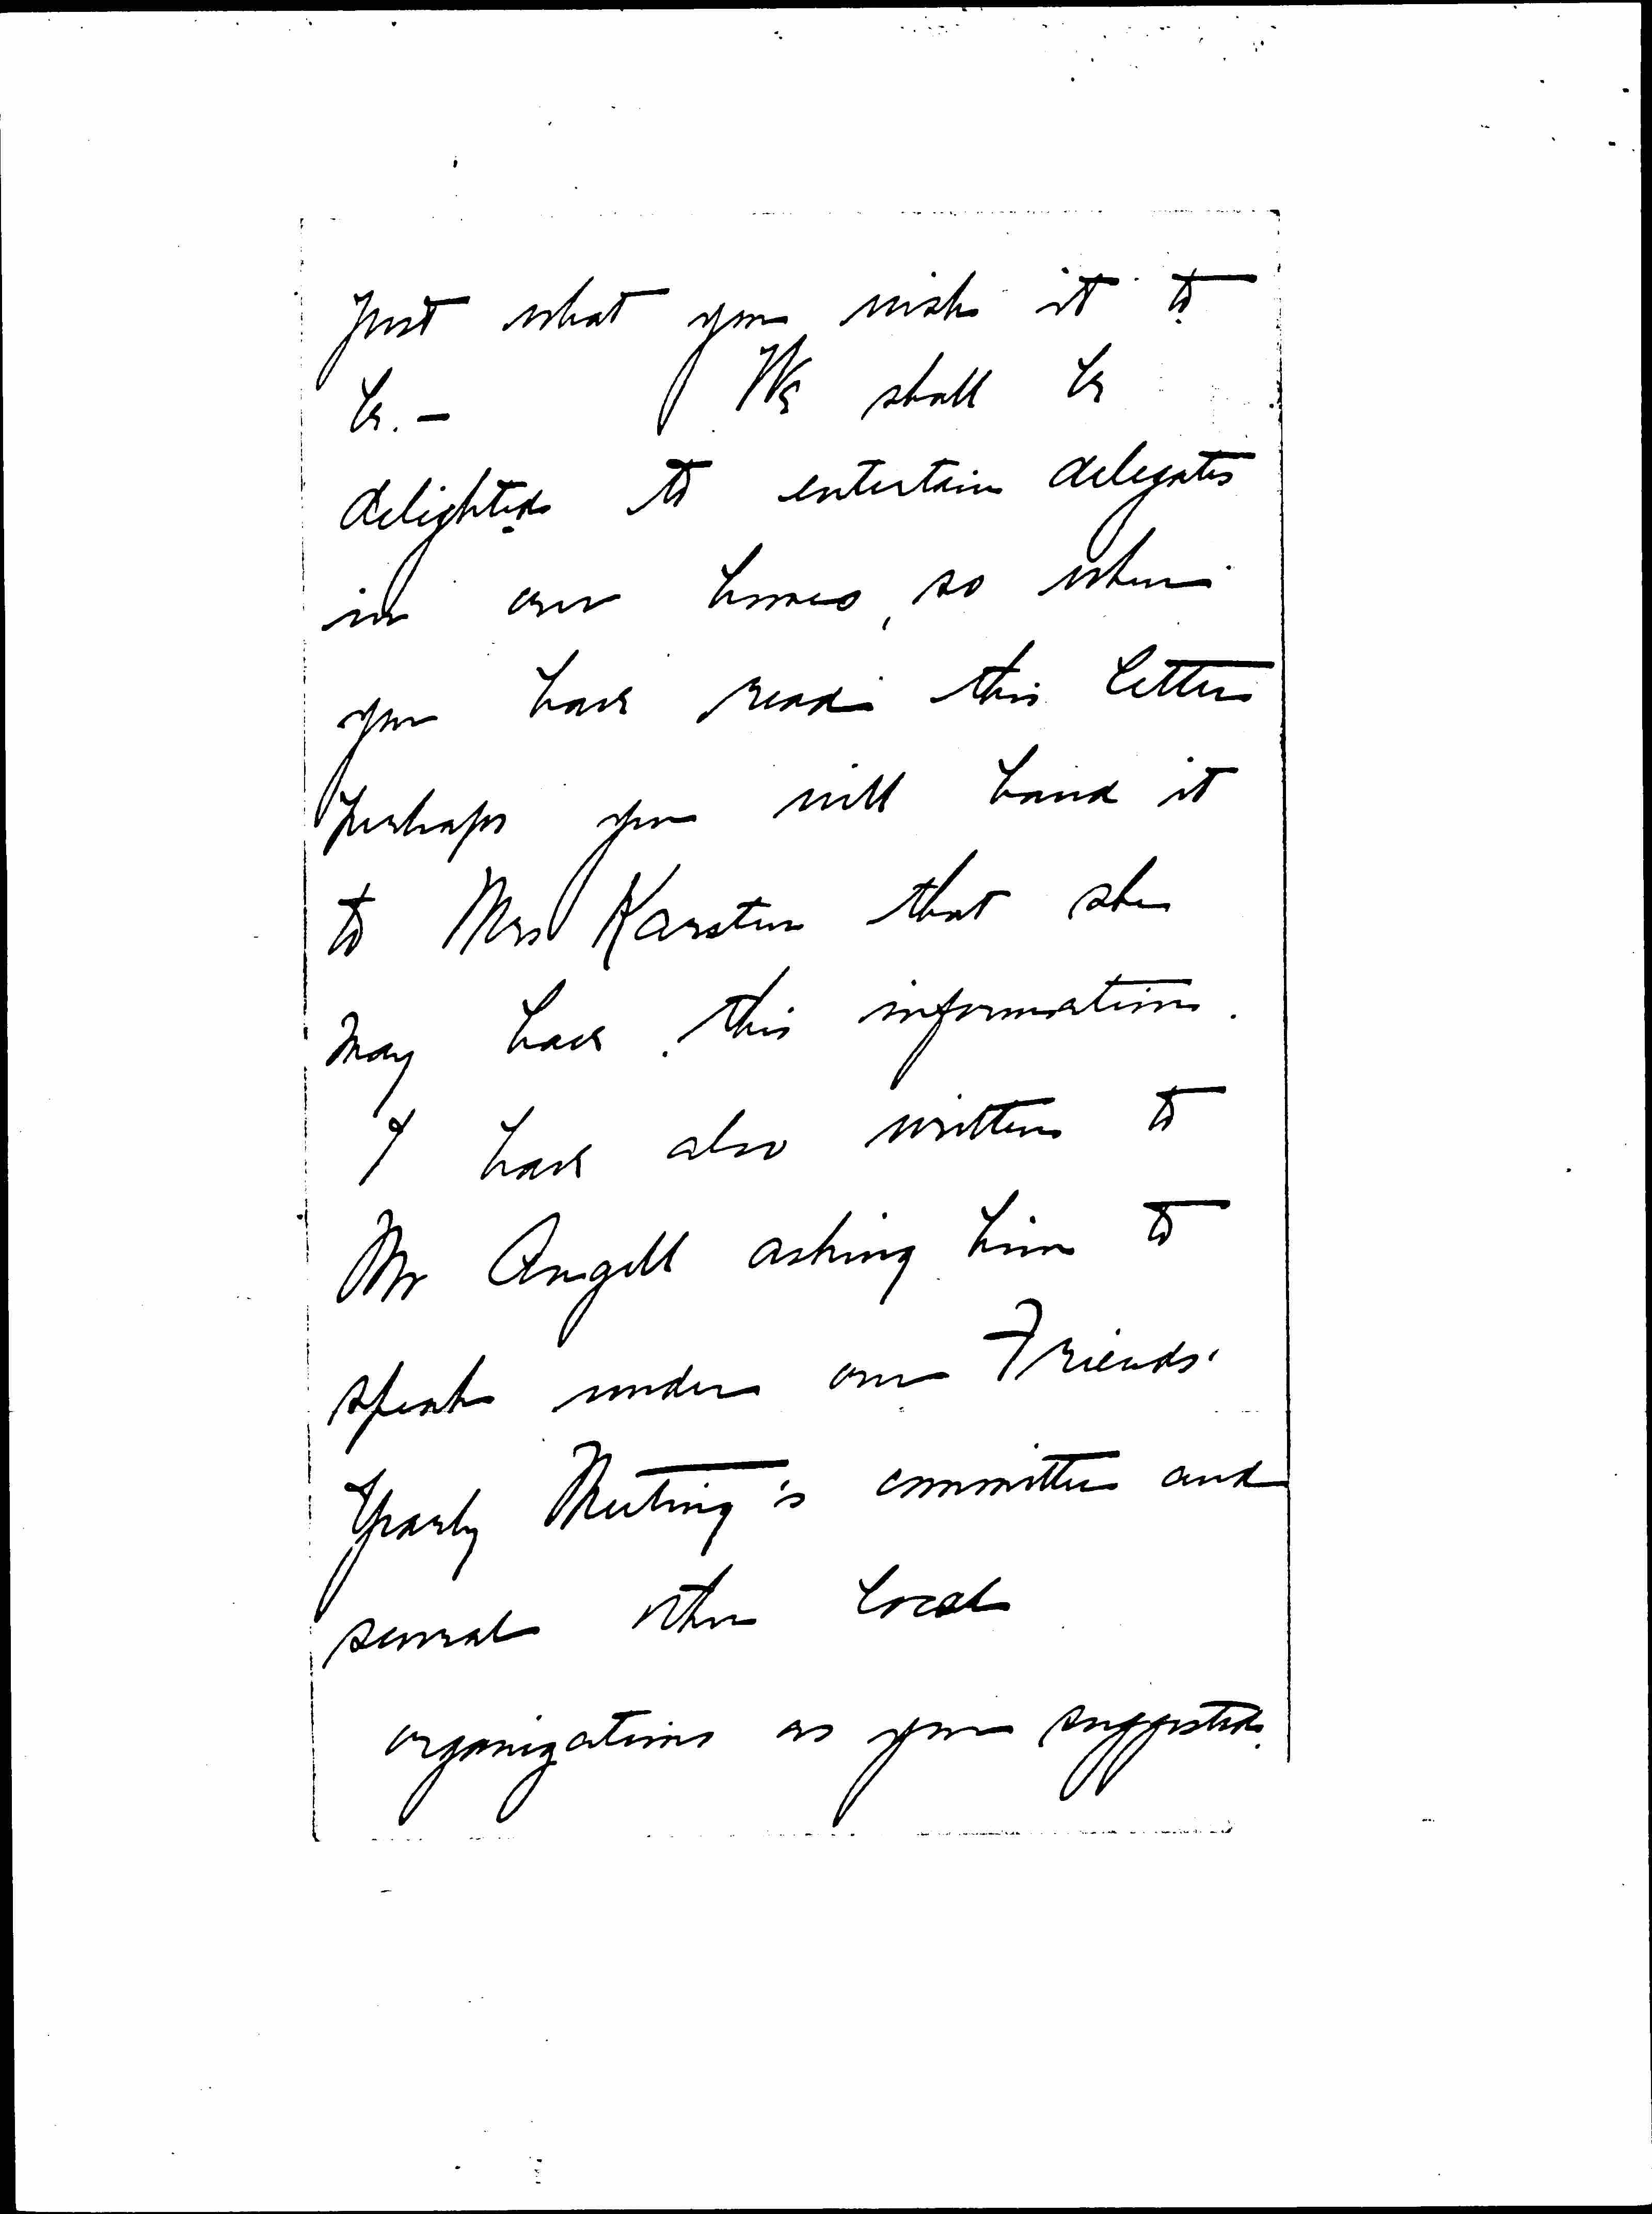 just what you wish it to
be. — We shall be
delighted to entertain delegates
in our homes, so when
you have read this letter
perhaps you will hand it
to Mrs Karsten that she
may have this information.
I have also written to
Mr Angell asking him to
speak under our Friends'
Yearly Meeting's committee and
several other local
organizations as you suggested.